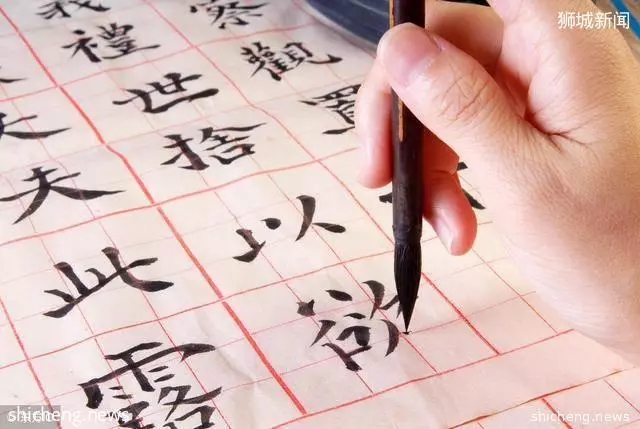 狮城新闻
察觀
我禮世捨以
夫此露
shicheng.news
shicheng.news